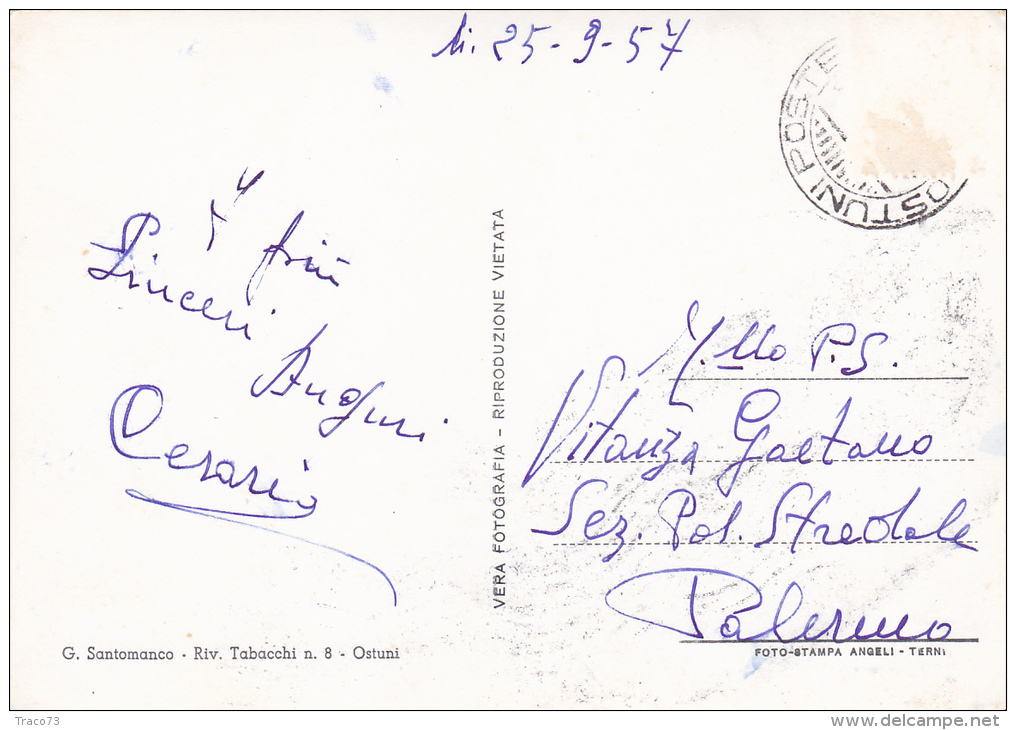 li. 25-9-57
OSTUNI POSTE
Sinceri
Auguri
Cesario
VERA FOTOGRAFIA - RIPRODUZIONE VIETATA
P.S.
Vitanza Gaetano
Sez. Pol. Stradale
Palermo
G. Santomanco - Riv. Tabacchi n. 8 - Ostuni
FOTO-STAMPA ANGELI - TERNI
Traco73
delcampe.net